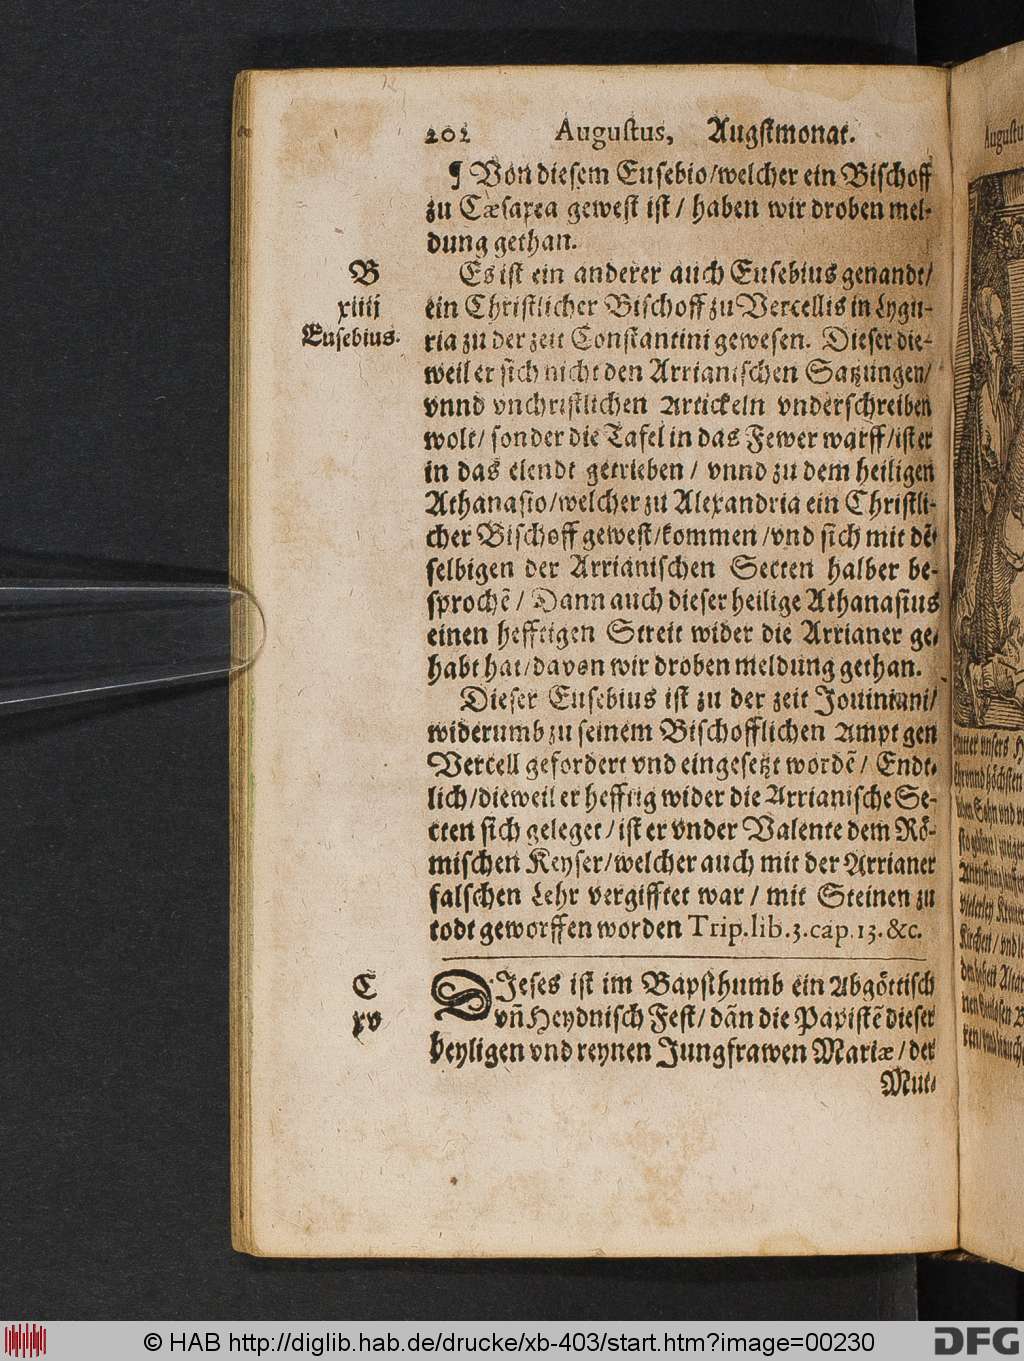 202 Augustus, Augstmonat.
¶ Von diesem Eusebio/welcher ein Bischoff
zu Cæsarea gewest ist / haben wir droben mel-
dung gethan.
B
xiiij
Eusebius.
Es ist ein anderer auch Eusebius genandt/
ein Christlicher Bischoff zu Vercellis in Lygu-
ria zu der zeit Constantini gewesen. Dieser die-
weil er sich nicht den Arrianischen Satzungen/
vnnd vnchristlichen Artickeln vnderschreiben
wolt/ sonder die Tafel in das Fewer warff/ist er
in das elendt getrieben / vnnd zu dem heiligen
Athanasio/welcher zu Alexandria ein Christli-
cher Bischoff gewest/kommen /vnd sich mit dē-
selbigen der Arrianischen Secten halber be-
sprochē / Dann auch dieser heilige Athanasius
einen hefftigen Streit wider die Arrianer ge-
habt hat/davon wir droben meldung gethan.
Dieser Eusebius ist zu der zeit Jouiniani/
widerumb zu seinem Bischofflichen Ampt gen
Vercell gefordert vnd eingesetzt wordē / Endt-
lich/dieweil er hefftig wider die Arrianische Se-
cten sich geleget / ist er vnder Valente dem Rö-
mischen Keyser/welcher auch mit der Arrianer
falschen Lehr vergifftet war / mit Steinen zu
todt geworffen worden Trip.lib.3.cap.13.&c.
C
xv
DIeses ist im Bapsthumb ein Abgöttisch
vñ Heydnisch Fest/ dān die Papistē dieser
heyligen vnd reynen Jungfrawen Mariæ / der
Mut-
© HAB http://diglib.hab.de/drucke/xb-403/start.htm?image=00230
DFG